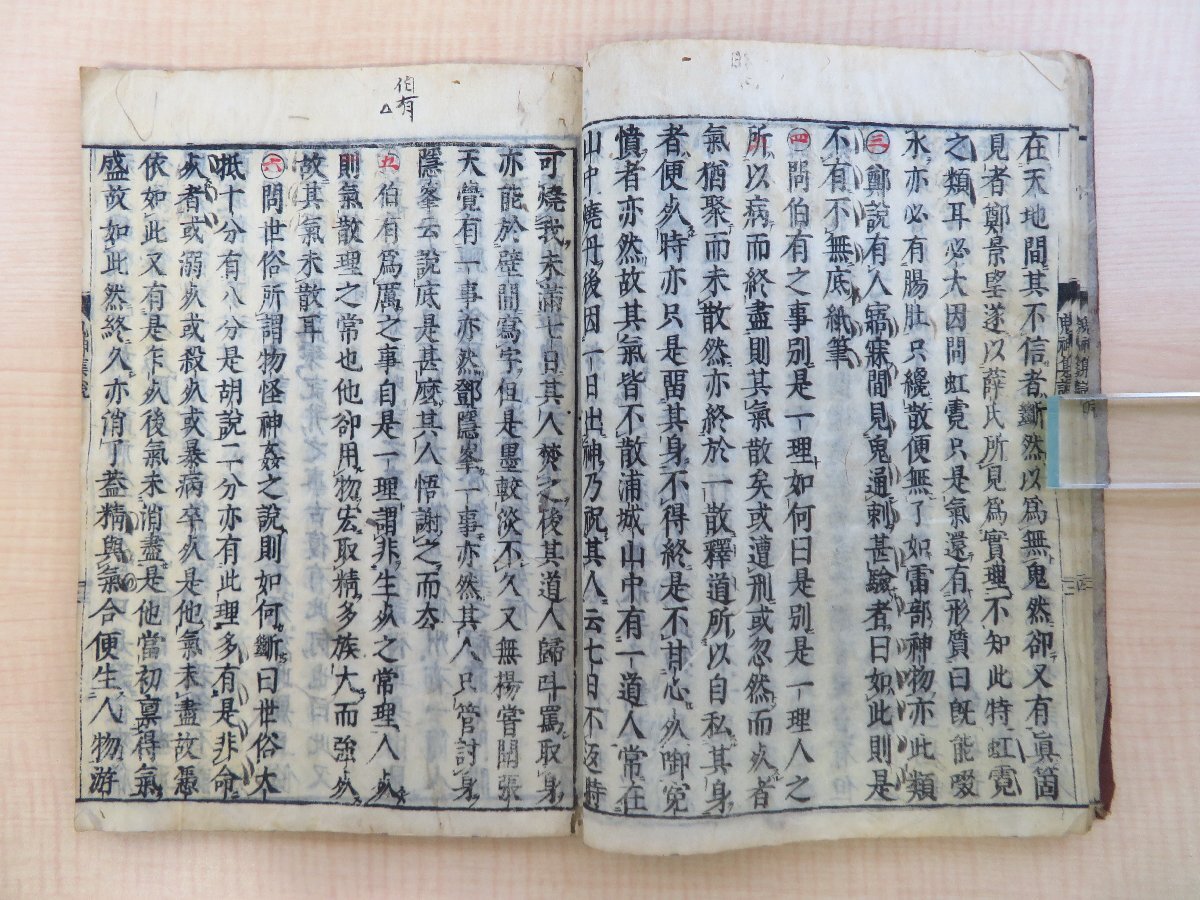 在天地間其不信者斷然以爲無鬼然卻又有眞箇
見者鄭景望遂以薛氏所見爲實理不知此特虹霓
之類耳必大因問虹霓只是氣還有形質曰旣能啜
水亦必有腸肚只纔散便無了如雷部神物亦此類
三鄭說有人寤寐間見鬼通刺甚驗者曰如此則是
不有不無底紙筆
四問伯有之事別是一理如何曰是別是一理人之
所以病而終盡則其氣散矣或遭刑或忽然而死者
氣猶聚而未散然亦終於一散釋道所以自私其身
者便死時亦只是留其身不得終是不甘心死啣冤
憤者亦然故其氣皆不散浦城山中有一道人常在
山中燒丹後因一日出神乃祝其人云七日不返時
伯有
可燒我未滿七日其人焚之後其道人歸叫罵取身
亦能於壁間寫字但是墨較淡不久又無楊嘗聞張
天覺有一事亦然鄧隱峯一事亦然其人只管討身
隱峯云說底是甚麼其人悟謝之而去
五伯有爲厲之事自是一理謂非生死之常理人死
則氣散理之常也他卻用物宏取精多族大而強死
故其氣未散耳
六問世俗所謂物怪神姦之說則如何斷曰世俗大
抵十分有八分是胡說二分亦有此理多有是非命
死者或溺死或殺死或暴病卒死是他氣未盡故憑
依如此又有是乍死後氣未消盡是他當初稟得氣
盛故如此然終久亦消了蓋精與氣合便生人物游